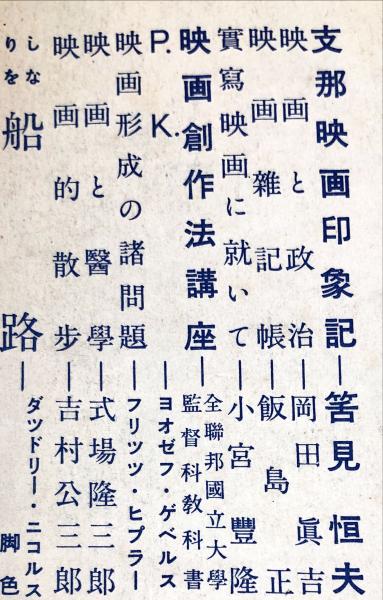 支那映画印象記―筈見恒夫
映画と政治―岡田眞吉
映画雜記帳―飯島正
實寫映画に就いて―小宮豐隆
映画創作法講座―全聯邦國立大學
監督科敎科書
P. K.―ヨオゼフ・ゲベルス
映画形成の諸問題―フリツツ・ヒプラー
映画と醫學―式場隆三郎
映画的散步―吉村公三郎
しなりを船路―ダツドリー・ニコルス
脚色